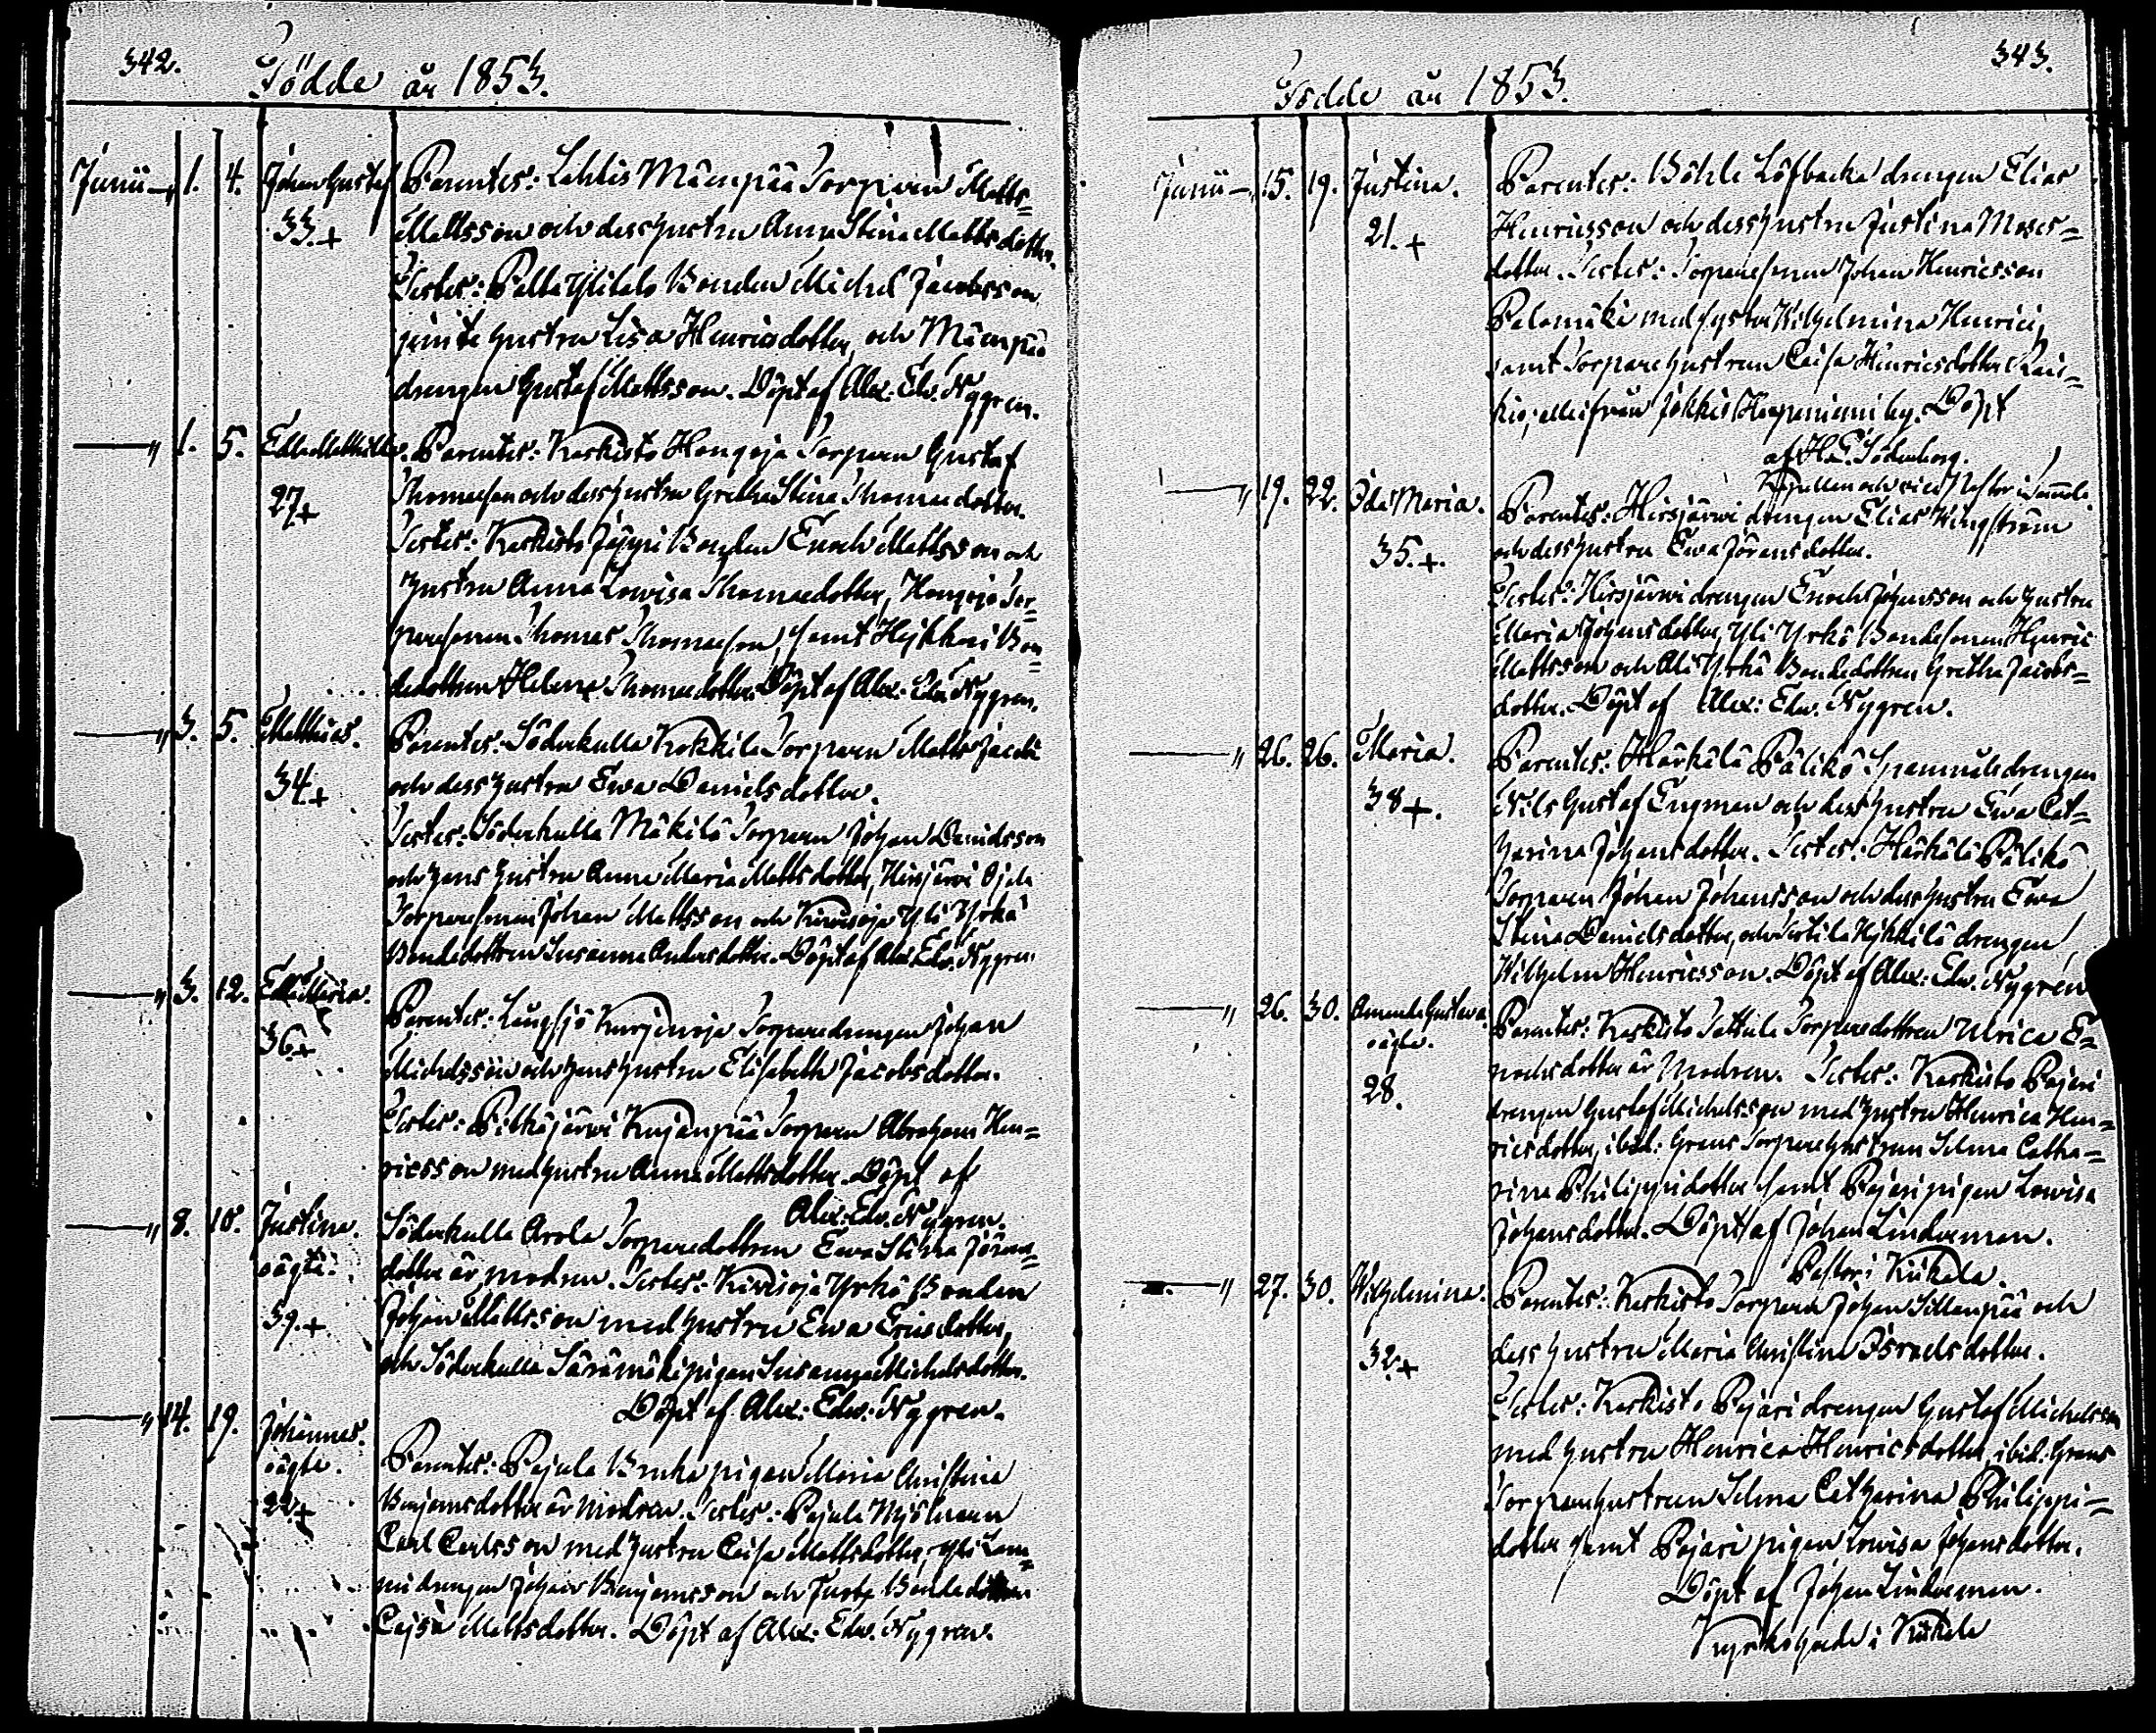 342.
Födde år 1853.
Junii 1. 4. Johan Gustaf 33.+ Parentes: Lahtis Mäenpää Torparen Matts
Mattsson och dess hustru Anna Stina Mattsdotter.
Testes: Palta Ylitalo Bonden Michel Jacobsson
jemte hustru Lisa Henricsdotter, och Mäenpää
drengen Gustaf Mattsson. Döpt af Alex: Edv. Nygren.
— " 1. 5. Edla Mathilda. 27+ Parentes: Karkisto Hongoja Torparen Gustaf
Thomasson och dess hustru Gretha Stina Thomasdotter.
Testes: Karkisto Jäppi Bonden Enoch Mattsson och
hustru Anna Lowisa Thomasdotter, Hongoja Tor=
paresonen Thomas Thomasson, samt Heikkari Bon=
dedottren Helena Thomasdotter. Döpt af Alex: Edv. Nygren.
— " 3. 5. Matthias. 34.+ Parentes: Söderkulla Kokkila Torparen Matts Jacobs
och dess hustru Ewa Danielsdotter.
Testes: Söderkulla Mäkilä Torparen Johan Danielsson
och hans hustru Anna Maria Mattsdotter, Hirsjärvi Ojala
Torparesonen Johan Mattsson och Kivisoja Yli Yrkö
Bondedottren Susanna Andersdotter. Döpt af Alex. Edv. Nygren.
— " 3. 12. Edla Maria. 36.+ Parentes: Långsjö Kurjenoja Torparedrengen Johan
Michelsson och hans hustru Elisabeth Jacobsdotter.
Testes: Pitkäjärvi Kujanpää Torparen Abraham Hen=
ricsson med hustru Anna Mattsdotter. Döpt af
Alex: Edv. Nygren.
— " 8. 10. Justina. oägta. 39.+ Söderkulla Arola Torparedottren Ewa Stina Jörans=
dotter är modren. Testes: Kivisoja Yrkö Bonden
Johan Mattsson med hustru Ewa Ericsdotter,
och Söderkulla Säämäki pigan Susanna Michelsdotter.
Döpt af Alex: Edv. Nygren.
— " 14. 19. Johannes. oägta. 22.+ Parentes: Pajula pigan Maria Christina
Benjamsdotter är modren. Testes: Pajula Mjölnaren
Carl Carlsson med hustru Caisa Mattsdotter, Yli Lam=
mi drengen Johan Benjamsson och Bondedottren
Cajsa Mattsdotter. Döpt af Alex: Edv. Nygren.
343.
Födde år 1853.
Junii 15. 19. Justina. 21.+ Parentes: Böhle Löfbacka drengen Elias
Henricsson och dess hustru Justina Moses=
dotter. Testes: Torparesonen Johan Henricsson
Palomäki med syster Wilhelmina Henrici,
samt Torparehustrun Caisa Henricsdotter
allifrån Jokkis Haapaniemi by. Döpt
af H. G. Söderberg.
Kapellan och vice Pastor i Sammli.
— " 19. 22. Ida Maria. 35.+. Parentes: Hirsjärwi drengen Elias Wingström
och dess hustru Ewa Jöransdotter.
Testes: Hirsjärwi drengen Enoch Johansson och hustru
Maria Johansdotter, Yli Yrkö Bondesonen Henric
Mattsson och Ali Yrkö Bondedottren Gretha Jacobs=
dotter. Döpt af Alex: Edv. Nygren.
— " 26. 26. Maria. 38+. Parentes: Härkälä Pälikö Spannmålsdrengen
Nils Gustaf Engman och dess hustru Ewa Cat=
harina Johansdotter. Testes: Härkälä Pälikö
Torparen Johan Johansson och dess hustru Ewa
Stina Danielsdotter, och Sertila Hykkilä drengen
Wilhelm Henricsson. Döpt af Alex: Edv. Nygren
— " 26. 30. Amanda Gustava oägta. 28. Parentes: Karkisto Tattula Torparedottren Ulrica E=
nochsdotter är Modren. Testes: Karkisto Pajari
drengen Gustaf Michelsson med hustru Henrica Hen=
ricsdotter, ibid: Grans Torparehustrun Selma Catha=
rina Philippidotter samt Pajari pigan Lowisa
Johansdotter. Döpt af Johan Lindeman.
Pastor i Kiikala.
— " 27. 30. Wilhelmina. 32.+ Parentes: Karkisto Torparen Johan Sillanpää och
dess hustru Maria Christina Israelsdotter.
Testes: Karkisto Pajari drengen Gustaf Michelsson
med hustru Henrica Henricsdotter, ibid: Grans
Torparehustrun Selma Catharina Philippi=
dotter samt Pajari pigan Lowisa Johansdotter.
Döpt af Johan Lindeman.
Kyrkoherde i Kiikala